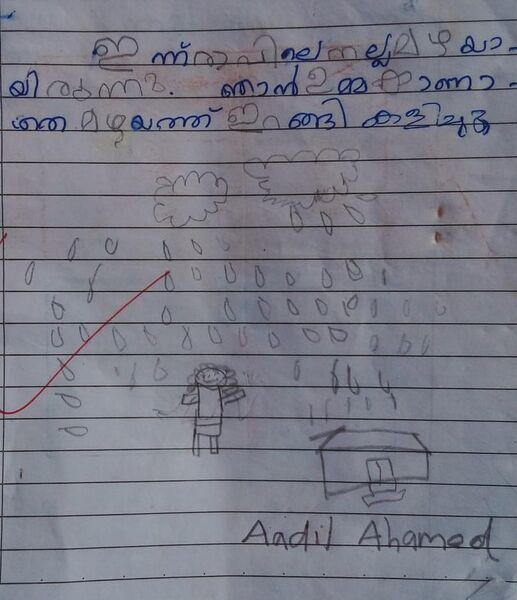 ഇന്ന് രാവിലെ നല്ല മഴയാ-
യിരുന്നു. ഞാൻ ഉമ്മ കാണാ-
തെ മഴയത്ത് ഇറങ്ങി കളിച്ചു
Aadil Ahamed